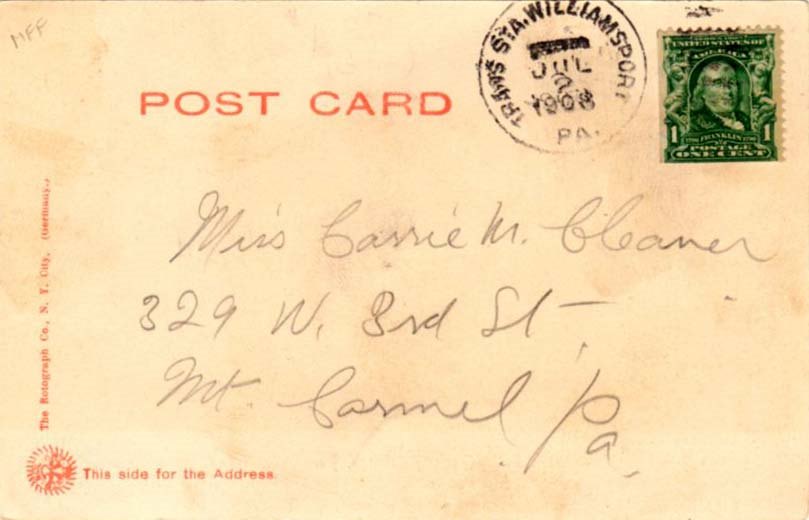 MFF
TRANS STA. WILLIAMSPORT
JUL
2
1908
PA.
UNITED STATES OF
AMERICA
1 1706 FRANKLIN 1790 1
POSTAGE
ONE CENT
POST CARD
Miss Carrie M. Cleaver
329 W. 3rd St
Mt. Carmel Pa.
The Rotograph Co., N. Y. City. (Germany.)
This side for the Address.